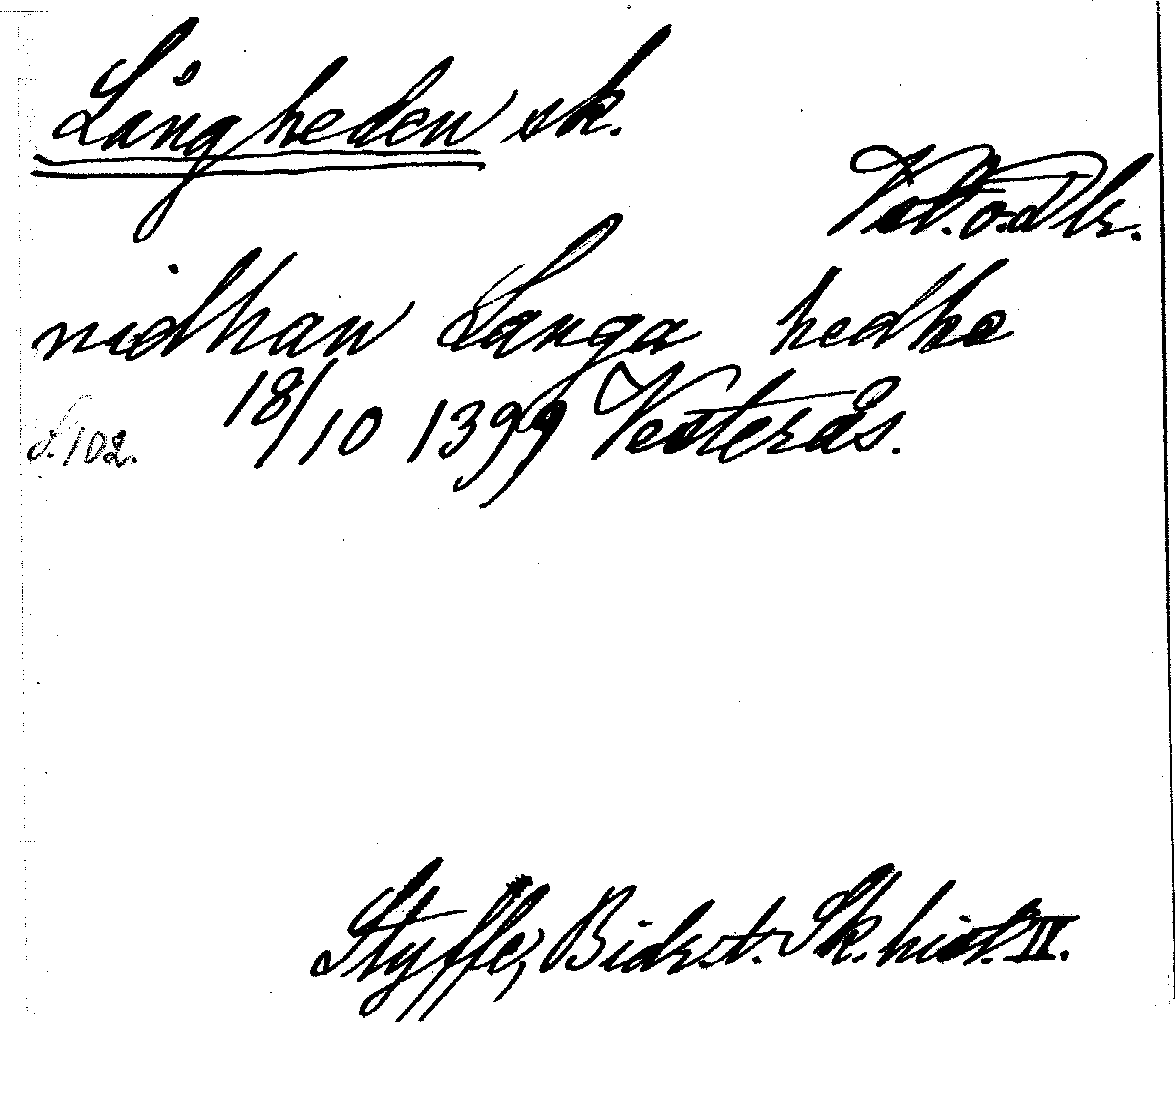 Långheden sk.
Vst. o. Dlr.
nidhan Langa hedhe
18/10 1399 Vesterås.
S. 102.
Styffe, Bidr. t. Sk. hist. II.